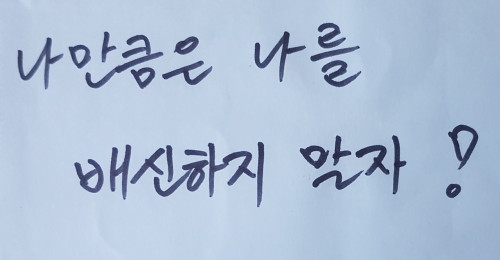 나만큼은 나를
배신하지 말자!